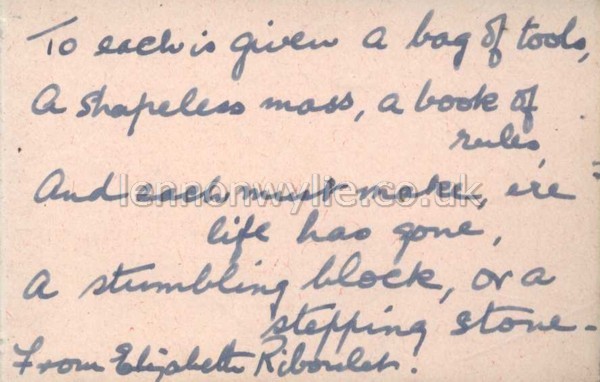 To each is given a bag of tools,
A shapeless mass, a book of
rules,
And each must make, ere
life has gone,
A stumbling block, or a
stepping stone -
From Elizabeth Riboulet.
lennonwylie.co.uk